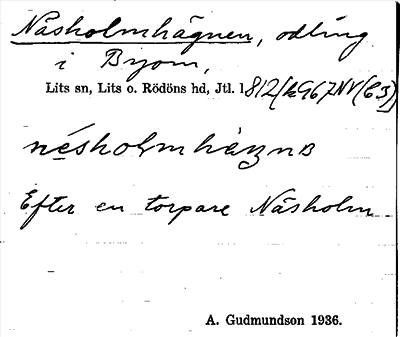 Näsholmhägnen, odling
i Byom,
Lits sn, Lits o. Rödöns hd, Jtl. 1812(k967NV(C3))
nésholmhäᶎnʙ
Efter en torpare Näsholm
A. Gudmundson 1936.